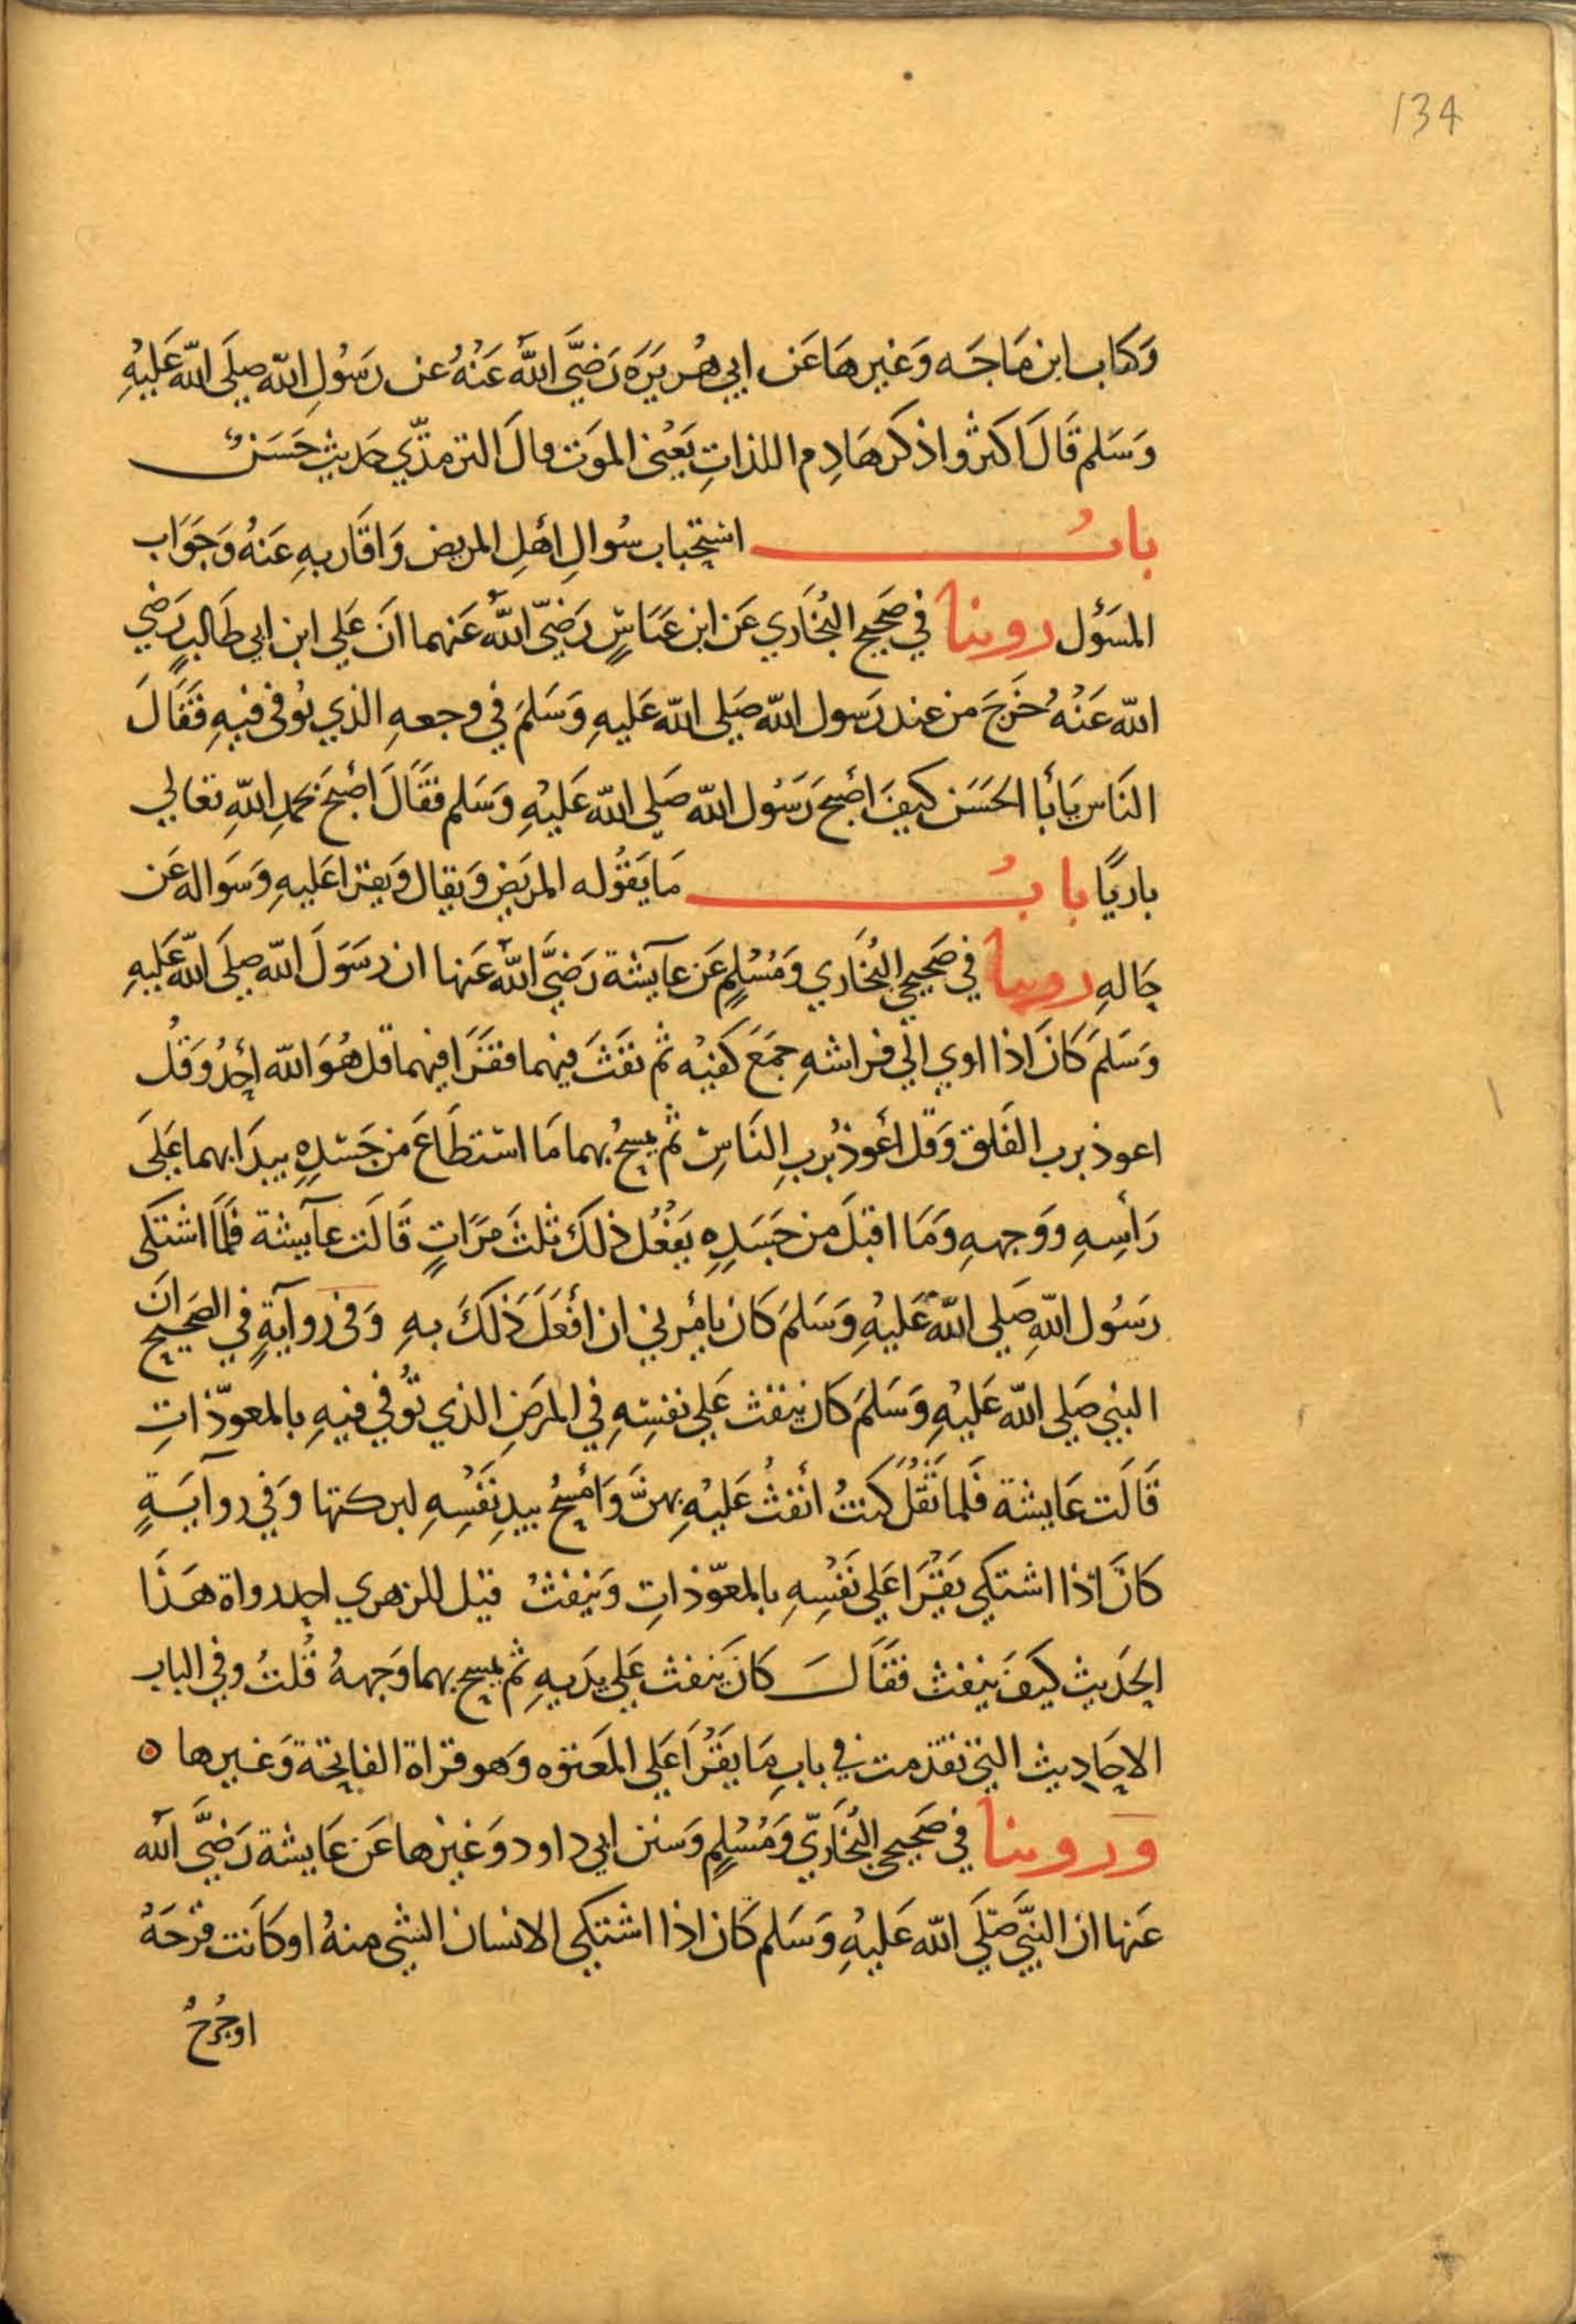 134
وَكِتاب ابن مَاجَه وَغيرهَا عَن ابي هُريَرَه رَضيَّ اللَّهُ عَنْهُ عن رَسُولِ اللّه صلَى اللّه عَليْهِ
وَسَلم قَالَ اكثروا ذكر هَادِم اللذاتِ يَعْني الموَت قالَ الترمذّي حَديث حَسَنٌ
بابُ استِحباب سُوالِ اهْلِ المريض وَاقَاربهِ عَنهُ وَجَوَاب
المسَؤل روينا في صَحيح البُخَاري عَن ابن عَبَاسٍ رَضيّ اللّهُ عَنهما انَ عَلي ابن ابي طَالبٍ رَضي
اللّه عَنْهُ خَرجَ من عند رَسول اللّه صَلى اللّه عَليهِ وَسَلمَ في وجعهِ الذي تُوفى فيهِ فَقَالَ
النَاس يَا أبا الحَسَن كيفَ أصْبحَ رَسُول اللّه صَلى اللّه عَليْهِ وَسَلم فقَالَ أصْبحَ بحمدِ اللّهِ تعَالي
باريًا بابُ مَا يَقوُله المريَض وَيقال وَيقرا عَليهِ وَسَواله عَن
حَالهِ روينا في صَحيحي البُخَاري وَمُسْلمٍ عَن عآيشة رَضيَّ اللّهُ عَنها ان رسَوَلَ اللّه صلَى اللّه عَليهِ
وَسَلمَ كانَ اذا اوي الي فراشهِ جمَعَ كَفيْه ثم نفَثَ فيهما فقَرَا فيهما قل هُوَ اللّه احَدُ وَقُل
اعوذ برب الفَلق وَقل اعوُذ بُربِ النَاسِ ثم يمسحُ بهما مَا استطَاعَ من جَسَدِهِ يبدَا بهما عَلَى
رَأسِهِ ووَجههِ وَمَا اقبَلَ من جَسَدِهِ يَفعُل ذلكَ ثلثَ مَرَاتٍ قَالَت عآيشة فَلمَا اشتكى
رسَوُل اللّهِ صَلى اللّهُ عَليْهِ وَسَلمَ كَان يامُرني ان أفعَلَ ذَلكَ بهِ وَفى روآيةٍ في الصَحيح انَ
النبي صَلى اللّه عَليْهِ وَسَلمَ كَان ينفث عَلي نفسِهِ في المرَضِ الذي تُوفي فيهِ بالمعوّذاتِ
قَالَت عَايشة فَلما ثَقُلَ كنتُ انفثُ عَليْهِ بهنَّ وَامْسحُ بيدِ نَفْسِهِ لبركتها وَفي روآيَةٍ
كانَ اذا اشتكي يقْرَا عَلى نَفْسِهِ بالمعوّذاتِ وَيَنفثُ قيل للزهري احد رواة هَذَا
الحَديث كيَفَ ينفث فقَالَ كانَ ينفث عَلى يدَيهِ ثم يمسح بهما وَجههُ قُلتُ وفي الباب
الاحَاديث التي تقدمت في بابِ مَا يقْرَا عَلى المعَتوه وَهو قراة الفاتحة وَغيرها ه
وروينا في صَحيحي البُخَاريّ وَمُسْلمٍ وَسنن ابي داود وَغيرها عَن عَايشة رَضيَّ اللّه
عَنها ان النبَّي صلَى اللّه عَليْهِ وَسَلم كَان اذا اشتكي الانسان الشي منهُ او كَانت قرْحَةٌ
اوجُرحٌ